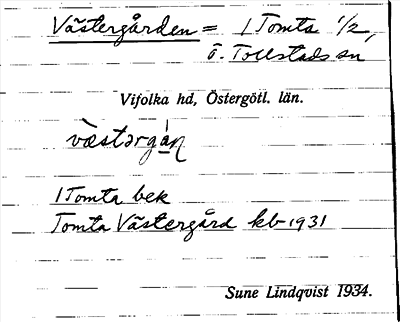 Västergården = 1 Tomta 1/2,
Ö. Tollstads sn
Vifolka hd, Östergötl. län.
væstərgán
1 Tomta bek
Tomta Västergård kb 1931
Sune Lindqvist 1934.